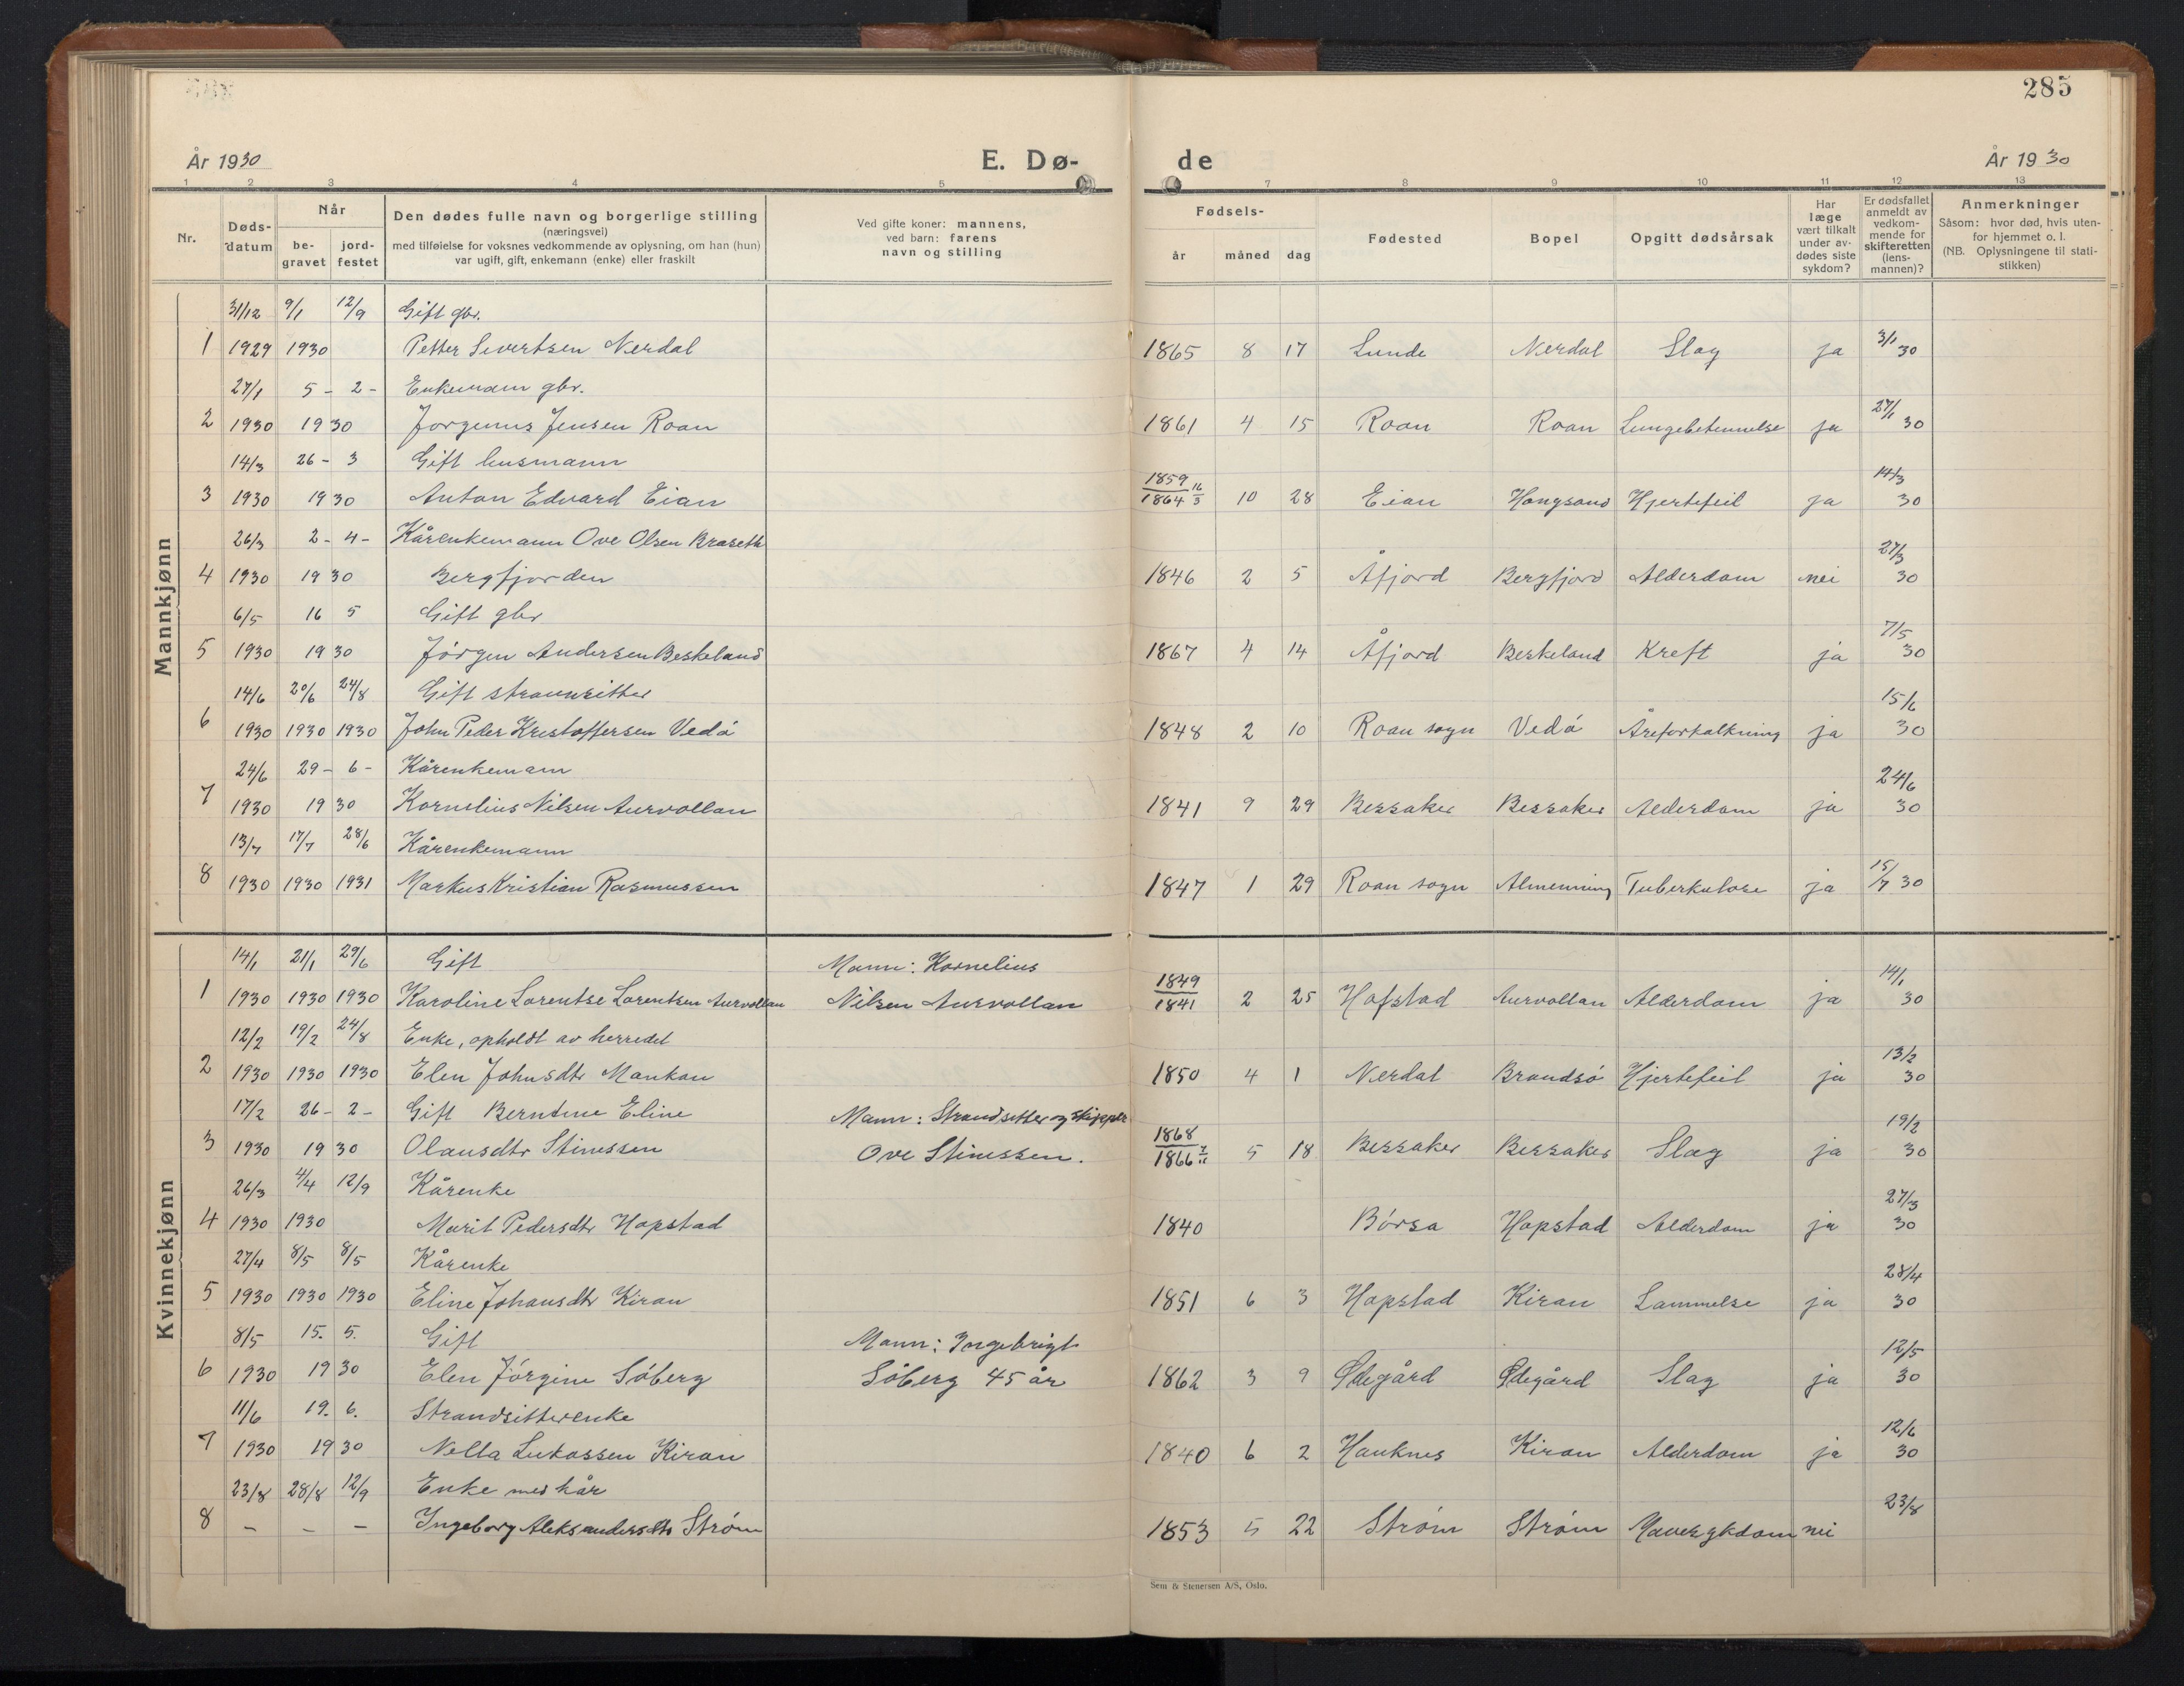 285
År 1930 E. Dø- de År 1930
1 2 3 4 5 7 8 9 10 11 12 13
Nr. Døds-datum Når be-gravet jord-festet Den dødes fulle navn og borgerlige stilling (næringsvei) med tilføielse for voksnes vedkommende av oplysning, om han (hun) var ugift, gift, enkemann (enke) eller fraskilt Ved gifte koner: mannens, ved barn: farens navn og stilling Fødsels- år måned dag Fødested Bopel Opgitt dødsårsak Har læge vært tilkalt under av-dødes siste sykdom? Er dødsfallet anmeldt av vedkom-mende for skifteretten (lens-mannen)? Anmerkninger Såsom: hvor død, hvis uten-for hjemmet o. l. (NB. Oplysningene til stati-stikken)
Mannkjønn
31/12 9/1 12/9 Gift gbr.
1 1929 1930 Petter Sivertsen Nerdal 1865 8 17 Lunde Nerdal Slag ja 3/1 30
27/1 5 - 2 - Enkemann gbr.
2 1930 1930 Jørginus Jensen Roan 1861 4 15 Roan Roan Lungebetennelse ja 27/1 30
14/3 26 - 3 Gift husmann
3 1930 1930 Anton Edvard Eian 1859 1864 16/3 10 28 Eian Hongsand Hjertefeil ja 14/3 30
26/3 2 - 4 - Kårenkemann Ove Olsen Braseth
4 1930 1930 Bergfjorden 1846 2 5 Åfjord Bergfjord Alderdom nei 27/3 30
6/5 16 5 Gift gbr
5 1930 1930 Jørgen Andersen Beskeland 1867 4 14 Åfjord Beskeland Kreft ja 7/5 30
14/6 20/6 24/8 Gift strannsitter
6 1930 1930 1930 John Peder Kristoffersen Vedø 1848 2 10 Roan sogn Vedø Åreforkalkning ja 15/6 30
24/6 29 - 6 - Kårenkemann
7 1930 1930 Kornelius Nilsen Aurvollan 1841 9 29 Bessaker Bessaker Alderdom ja 24/6 30
13/7 17/7 28/6 Kårenkemann
8 1930 1930 1931 Markus Kristian Rasmussen 1847 1 29 Roan sogn Almenning Tuberkulose ja 15/7 30
Kvinnekjønn
14/1 21/1 29/6 Gift Mann: Kornelius
1 1930 1930 1930 Karoline Lorentse Lorentsen Aurvollan Nilsen Aurvollan 1849 1841 2 25 Hofstad Aurvollan Alderdom ja 14/1 30
12/2 19/2 24/8 Enke, opholdt av herredet
2 1930 1930 1930 Elen Johnsdtr Mankan 1850 4 1 Nerdal Brandsø Hjertefeil ja 13/2 30
17/2 26 - 2 - Gift Berntine Eline Mann: Strandsitter og skipper
3 1930 1930 Olausdtr Stinessen Ove Stinessen. 1868 1866 5 18 Bessaker Bessaker Slag ja 19/2 30
26/3 4/4 12/9 Kårenke
4 1930 1930 Marit Pedersdtr Hopstad 1840 Børsa Hopstad Alderdom ja 27/3 30
27/4 8/5 8/5 Kårenke
5 1930 1930 1930 Eline Johansdtr Kiran 1851 6 3 Hopstad Kiran Lammelse ja 28/4 30
8/5 15. 5. Gift Mann: Ingebrigt
6 1930 1930 Elen Jørgine Søberg Søberg 45 år 1862 3 9 Ødegård Ødegård Slag ja 12/5 30
11/6 19. 6. Strandsitterenke
7 1930 1930 Nella Lukassen Kiran 1840 6 2 Hauknes Kiran Alderdom ja 12/6 30
23/8 28/8 12/9 Enke med kår
8 - - - Ingeborg Aleksandersdtr Strøm 1853 5 22 Strøm Strøm Mavesykdom nei 23/8
Sem & Stenersen A/S, Oslo.